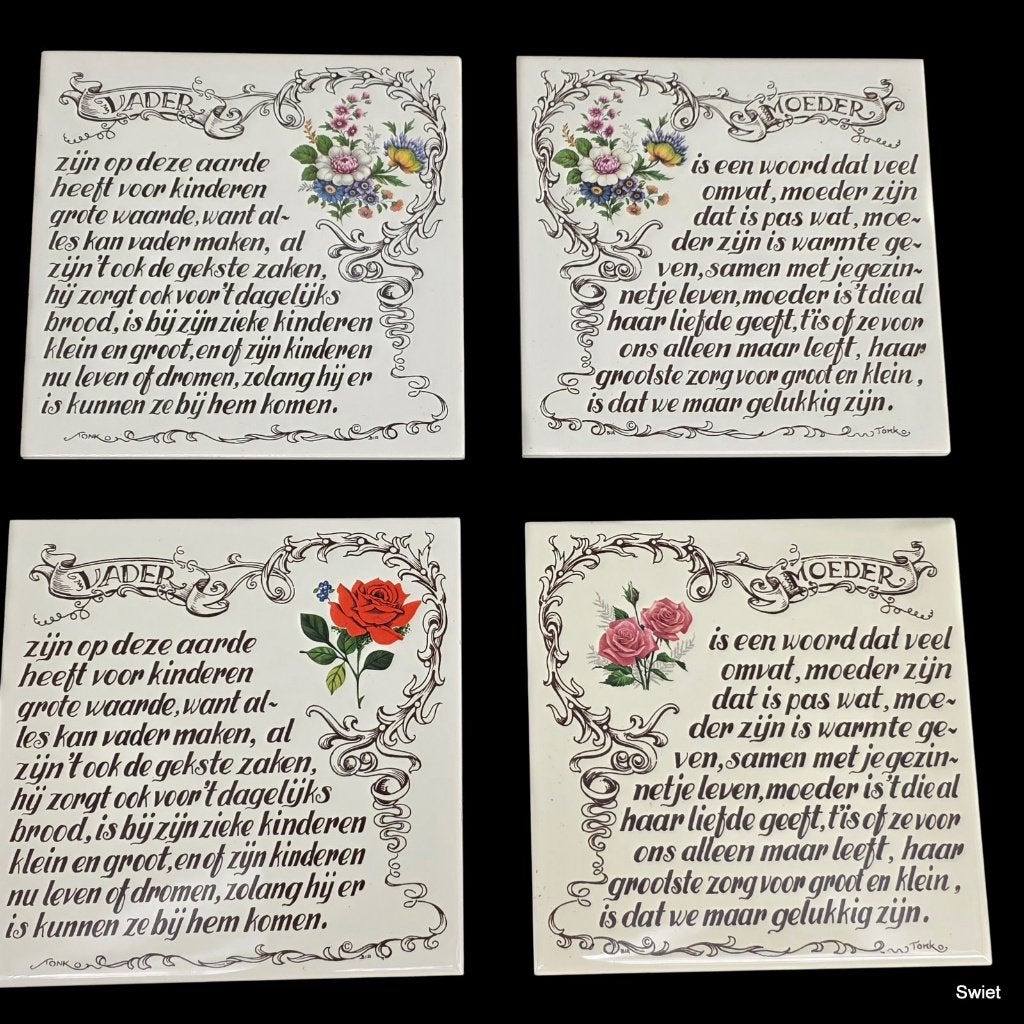 VADER
zijn op deze aarde
heeft voor kinderen
grote waarde, want al~
les kan vader maken, al
zijn 't ook de gekste zaken,
hij zorgt ook voor 't dagelijks
brood, is bij zijn zieke kinderen
klein en groot, en of zijn kinderen
nu leven of dromen, zolang hij er
is kunnen ze bij hem komen.
TONK
MOEDER
is een woord dat veel
omvat, moeder zijn
dat is pas wat, moe~
der zijn is warmte ge~
ven, samen met je gezin~
netje leven, moeder is 't die al
haar liefde geeft, t'is of ze voor
ons alleen maar leeft, haar
grootste zorg voor groot en klein,
is dat we maar gelukkig zijn.
TONK
VADER
zijn op deze aarde
heeft voor kinderen
grote waarde, want al~
les kan vader maken, al
zijn 't ook de gekste zaken,
hij zorgt ook voor 't dagelijks
brood, is bij zijn zieke kinderen
klein en groot, en of zijn kinderen
nu leven of dromen, zolang hij er
is kunnen ze bij hem komen.
TONK
MOEDER
is een woord dat veel
omvat, moeder zijn
dat is pas wat, moe~
der zijn is warmte ge~
ven, samen met je gezin~
netje leven, moeder is 't die al
haar liefde geeft, t'is of ze voor
ons alleen maar leeft, haar
grootste zorg voor groot en klein,
is dat we maar gelukkig zijn.
TONK
Swiet